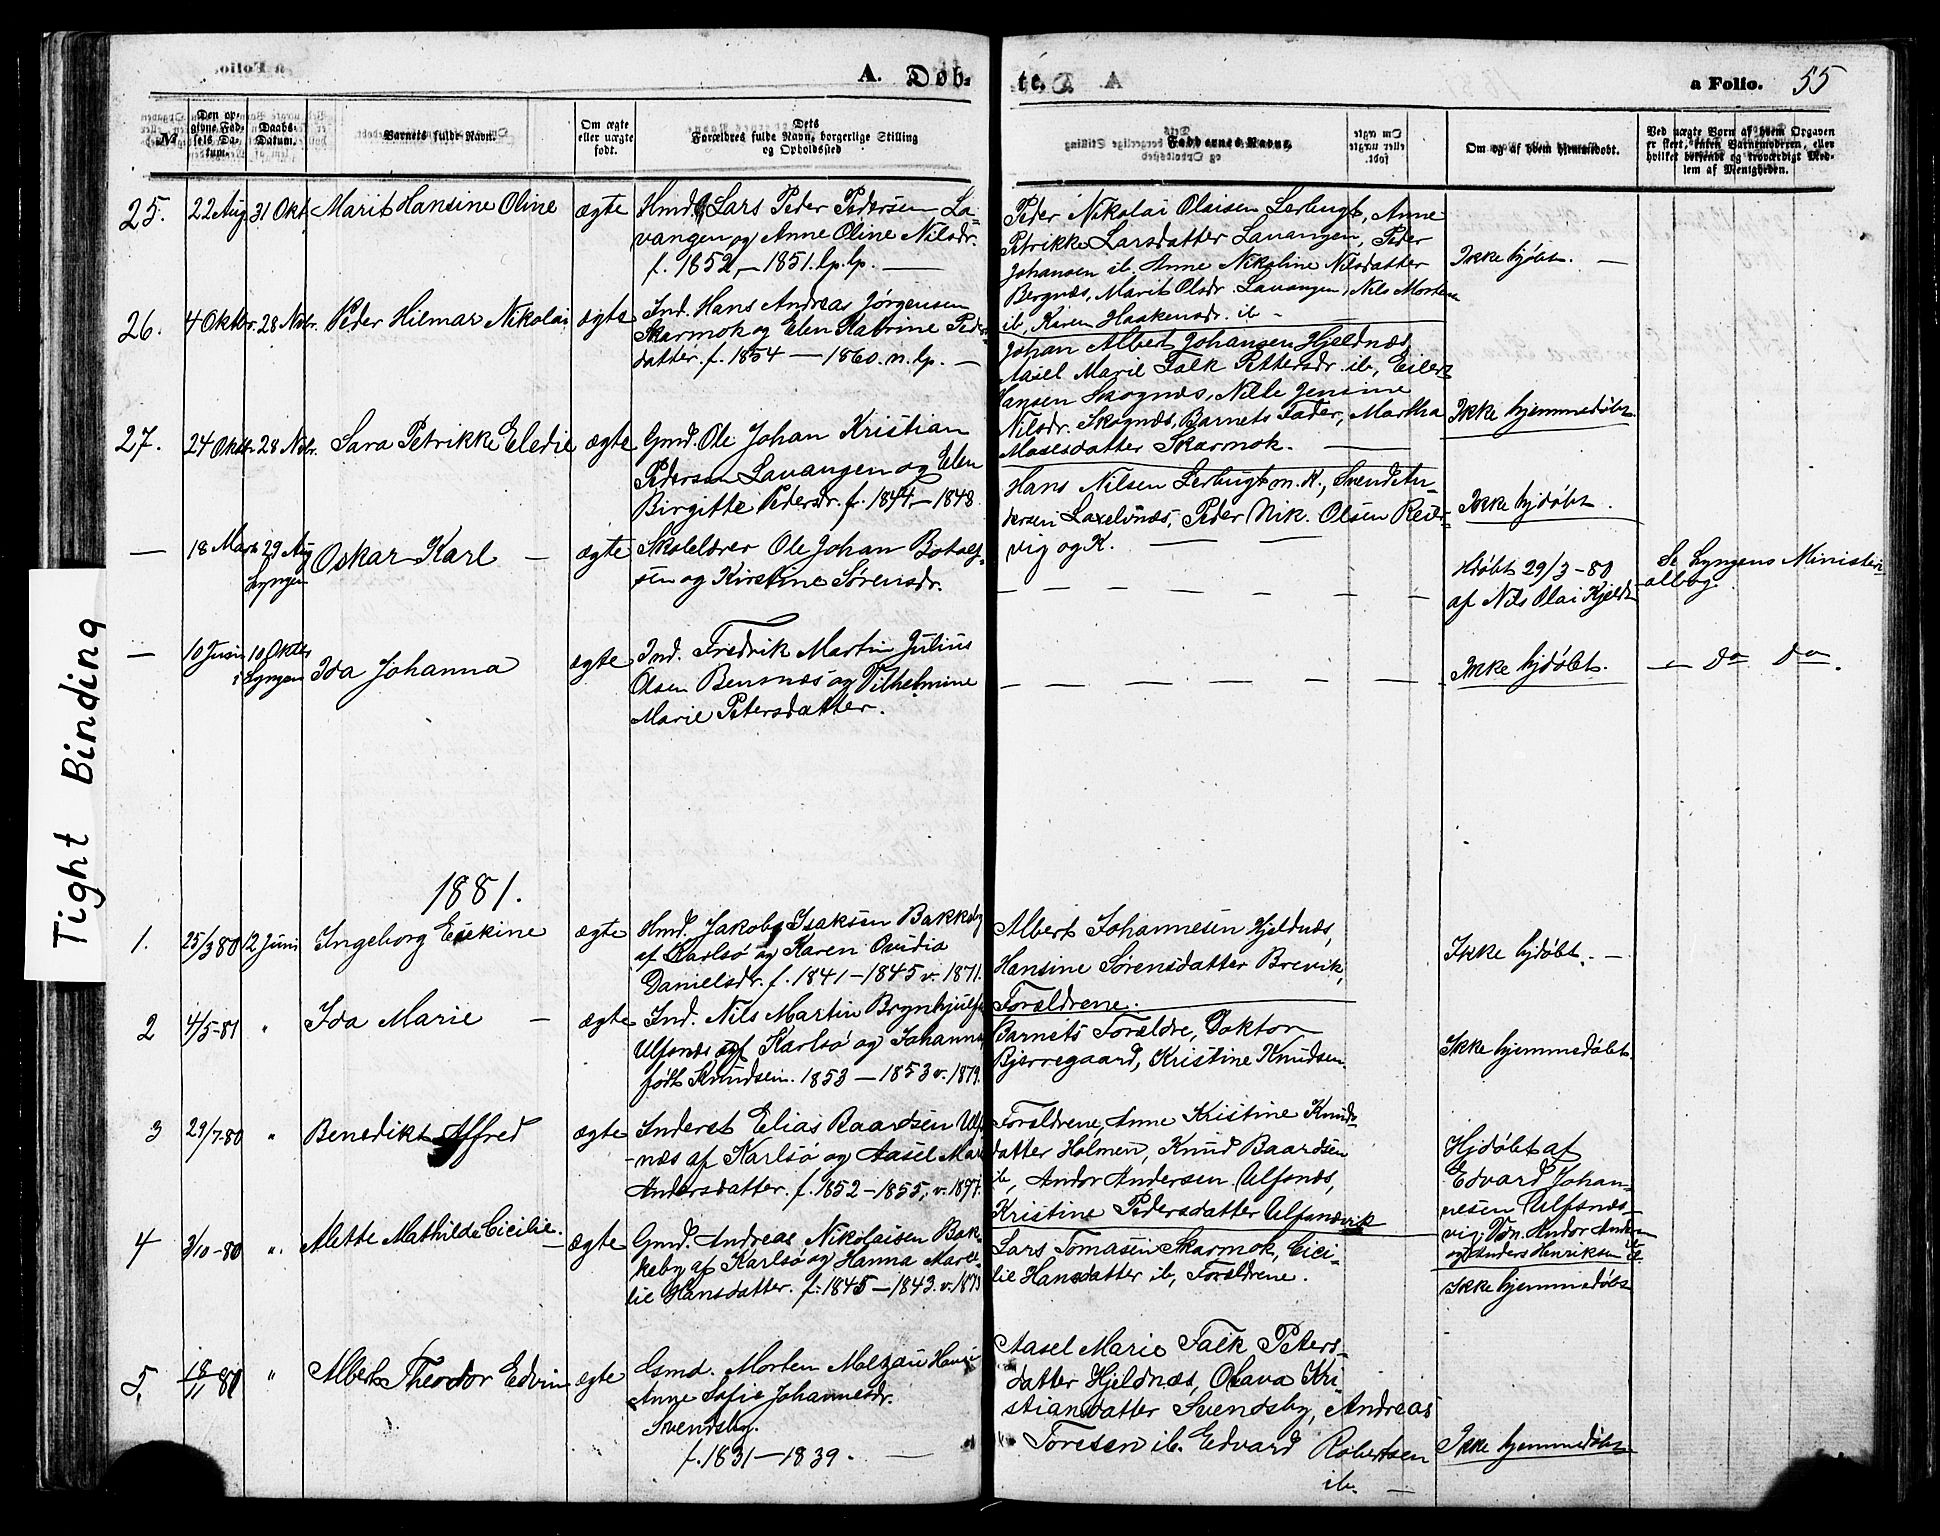 A. Døb-
te.
a Folio. 55
№
Den op-
givne Fød-
sels Da-
tum.
Daabs-
Datum.
Barnets fulde Navn.
Om ægte
eller uægte
født.
Dets
Forældres fulde Navn, borgerlige Stilling
og Opholdssted
Faddernes Navne.
Om og af hvem hjemmedøbt.
Ved uægte Børn af hvem Opgaven
er skeet, enten Barnemoderen, eller
hvilket bekjendt og troværdigt Med-
lem af Menigheden.
25. 22 Aug 31 Okt. Marit Hansine Oline ægte
Hmd. Lars Peder Pedersen La-
vangen og Anne Oline Nilsdr.
f. 1852, – 1851. lp. lp. —
Peder Nikolai Olaisen Lerbugt, Anne
Petrikke Larsdatter Lavangen, Peder
Johansen ib. Anne Nikoline Nilsdatter
Bergnæs, Marit Olsdr. Lavangen, Nils Morten
ib, Karen Haakensdr. ib –
Ikke hjdøbt. —
26. 4 Oktbr. 28 Nvbr. Peder Hilmar Nikolai ægte
Ind. Hans Andreas Jørgensen
Skarmok og Elen Katrine Peders-
datter. f. 1854 — 1860. n. lp. —
Johan Albert Johansen Hjeldnæs,
Aasel Marie Falk Pettersdr. ib, Eilert
Hansen Skognæs, Nille Jensine
Nilsdr. Skognæs, Barnets Fader, Martha
Mosesdatter Skarmok. —
Ikke hjemmedøbt
27. 24 Oktbr 28 Nvbr. Sara Petrikke Eledie ægte
Gmd. Ole Johan Kristian
Pedersen Lavangen og Elen
Birgitte Pedersdr. f. 1844 – 1848.
Hans Nilsen Lerbugt m. K., Svend An-
dersen Laxelvnæs, Peder Nik. Olsen Reiers-
vig og K. — —
Ikke hjdøbt.
— 18 Marts 29 Aug
Lyngen
Oskar Karl — ægte
Skolelærer Ole Johan Botolf-
sen og Kirstine Sørensdr.
Hdøbt 29/3 – 80
af Nils Olai Kjeldr
Se Lyngens Ministeri-
albog.
— 10 Juni 10 Oktbr
i Lyngen
Ida Johanna ægte
Ind. Fredrik Martin Julius
Olsen Bensnæs og Vilhelmine
Marie Petersdatter.
Ikke hjdøbt.
— Do Do.
1881.
1. 25/3 80 12 Juni Ingeborg Erekine ægte
Hmd. Jakob Isaksen Bakkeby
af Karlsø og Karen Ovidia
Danielsdr. f. 1841 – 1845 v. 1871.
Albert Johannesen Hjeldnæs,
Hansine Sørensdatter Brevik,
Forældrene.
Ikke hjdøbt. —
2 4/5-81 " Ida Marie — ægte
Ind. Nils Martin Brynhjulfs
Ulfsnæs af Karlsø og Johanna
født Knudsen. 1853 — 1853 v. 1879.
Barnets Forældre, Doktor
Bjerregaard, Kristine Knudsen.
Ikke hjemmedøbt.
3 29/7-80 " Benedikt Alfred ægte
Inderst Elias Baardsen Ulfs-
næs af Karlsø og Aasel Mar.
Andersdatter. f. 1852 – 1855, v. 1877.
Forældrene, Anne Kristine Knuds-
datter Holmen, Knud Baardsen
ib, Andor Andersen Ulfsnæs,
Kristine Pedersdatter Ulfsnæsvik
Hjdøbt af
Edvard Johan-
nesen Ulfsnæs-
vig. Vdn. Andor Anders
og Anders Henriksen ib.
4 3/10-80 " Mette Mathilde Cicilie. — ægte
Gmd. Andreas Nikolaisen Bak-
keby af Karlsø og Hanna Mare-
lie Hansdatter. f. 1845 – 1843. v. 1873
Lars Tomasen Skarmok, Cici-
lie Hansdatter ib, Forældrene.
Ikke hjemmedøbt
5. 18/11 80 " Albert Theodor Edvin ægte
Gsmd. Morten Melzau Hansen
Anne Sofie Johannesdr.
Svendsby.
f. 1831 — 1839. —
Aasel Marie Falk Peters-
datter Hjeldnæs, Olava Kri-
stiansdatter Svendsby, Andreas
Toresen ib. Edvard Robertsen
ib. —
Ikke hjemmedøbt
Tight Binding